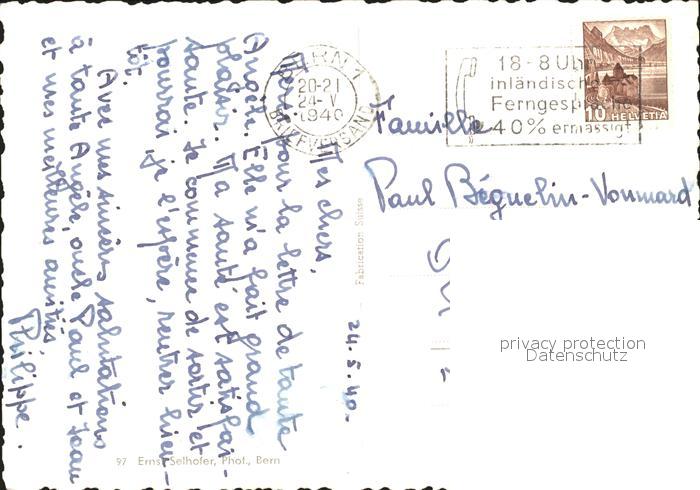 Mes chers,
Merci pour la lettre de tante
Angèle. Elle m'a fait grand
plaisir. Ma santé est satisfai-
sante. Je commence de sortir et
pourrai je l'espère, rentrer bien-
tôt.
Avec mes sincères salutations
à tante Angèle, oncle Paul et Jean
et mes meilleures amitiés,
Philippe.
24.5.40.
Fabrication Suisse
97 Ernst Selhofer, Phot., Bern
BERN 1
20-21
24-V
1940
BRIEFVERSAND
18-8 Uhr
inländische
Ferngespräche
40% ermässigt
10 HELVETIA
Famille
Paul Béguelin-Vonmard
privacy protection
Datenschutz